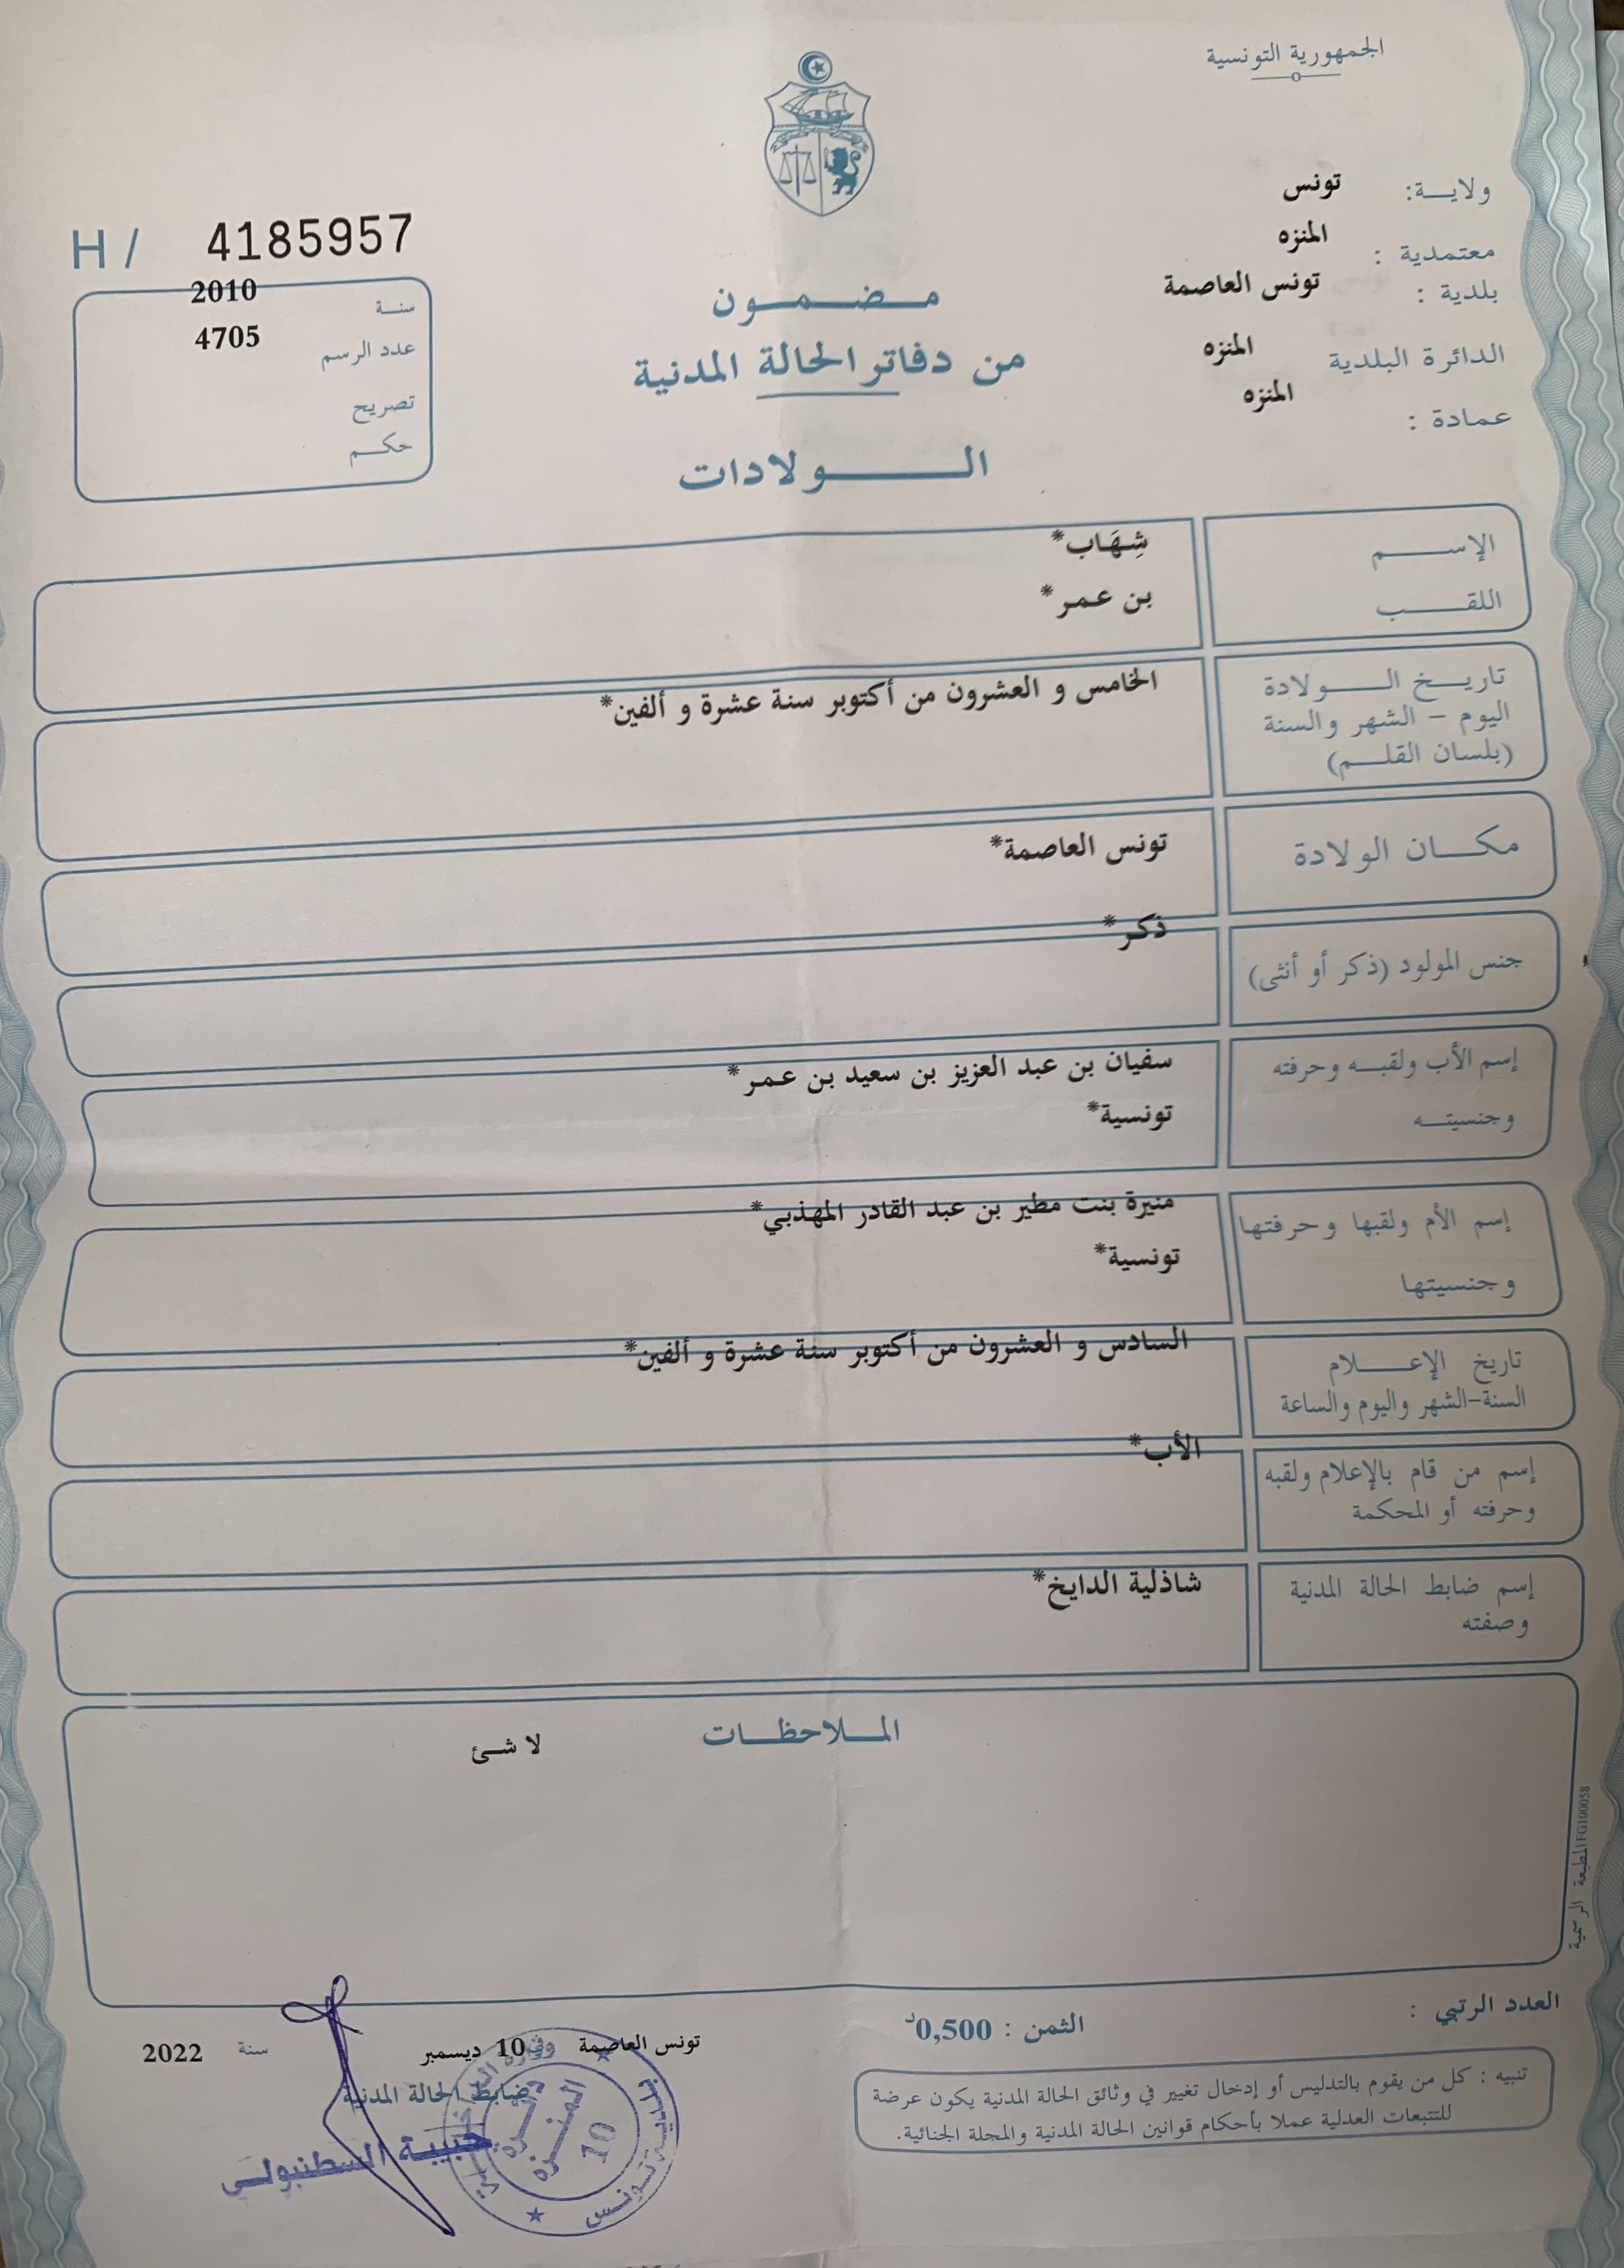 الجمهورية التونسية
ولاية: تونس
معتمدية : المنزه
بلدية : تونس العاصمة
الدائرة البلدية المنزه
عمادة : المنزه
H / 4185957
سنة 2010
عدد الرسم 4705
تصريح
حكم
مضمون
من دفاتر الحالة المدنية
الولادات
الإسم شِهَاب*
اللقب بن عمر*
تاريخ الولادة الخامس و العشرون من أكتوبر سنة عشرة و ألفين*
اليوم - الشهر والسنة
(بلسان القلم)
مكان الولادة تونس العاصمة*
جنس المولود (ذكر أو أنثى) ذكر*
إسم الأب ولقبه وحرفته سفيان بن عبد العزيز بن سعيد بن عمر*
وجنسيته تونسية*
إسم الأم ولقبها وحرفتها منيرة بنت مطير بن عبد القادر المهذبي*
وجنسيتها تونسية*
تاريخ الإعلام السادس و العشرون من أكتوبر سنة عشرة و ألفين*
السنة-الشهر واليوم والساعة
إسم من قام بالإعلام ولقبه الأب*
وحرفته أو المحكمة
إسم ضابط الحالة المدنية شاذلية الدايخ*
وصفته
الملاحظات
لا شئ
المطبعة الرسمية FG100058
العدد الرتبي :
الثمن : 0,500د
تنبيه : كل من يقوم بالتدليس أو إدخال تغيير في وثائق الحالة المدنية يكون عرضة
للتتبعات العدلية عملا بأحكام قوانين الحالة المدنية والمجلة الجنائية.
تونس العاصمة في 10 ديسمبر سنة 2022
ضابط الحالة المدنية
حبيبة السطنبولي
بلدية تونس
دائرة
المنزه
10